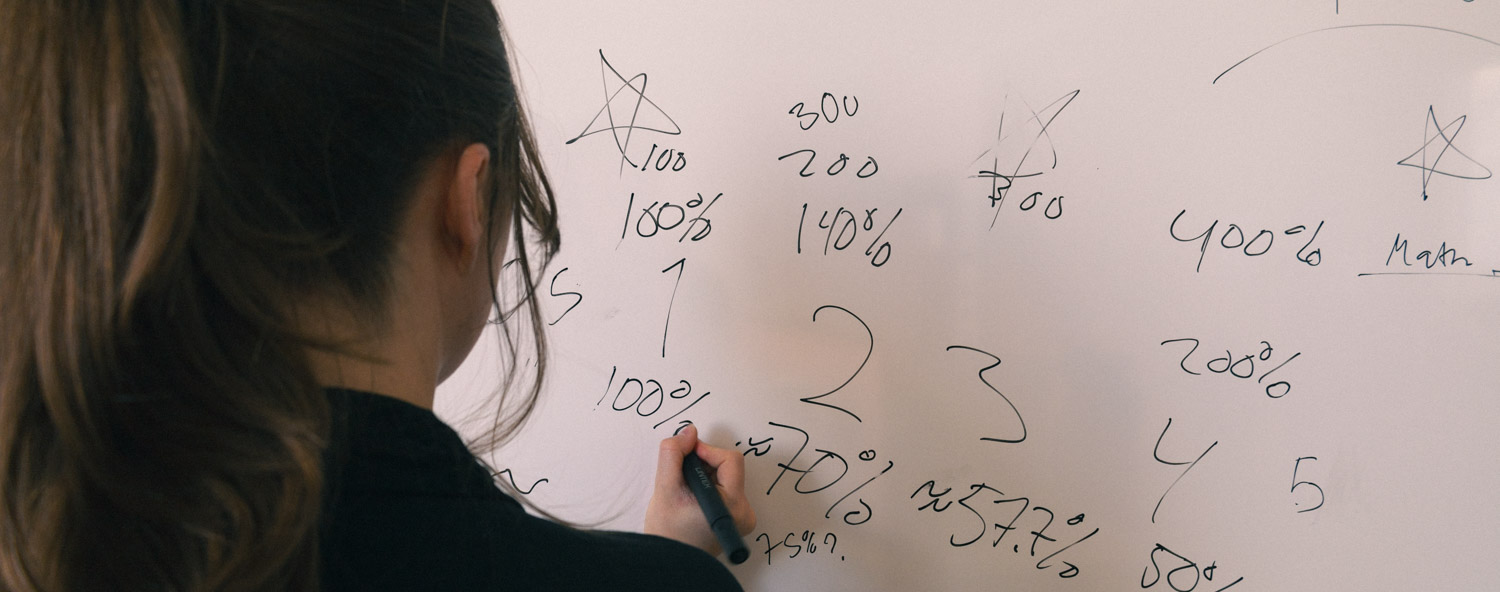 300
100
200
100%
140%
400%
Math
S
1
2
3
200%
100%
4
≈70%
5
≈57.7%
75%?
50%